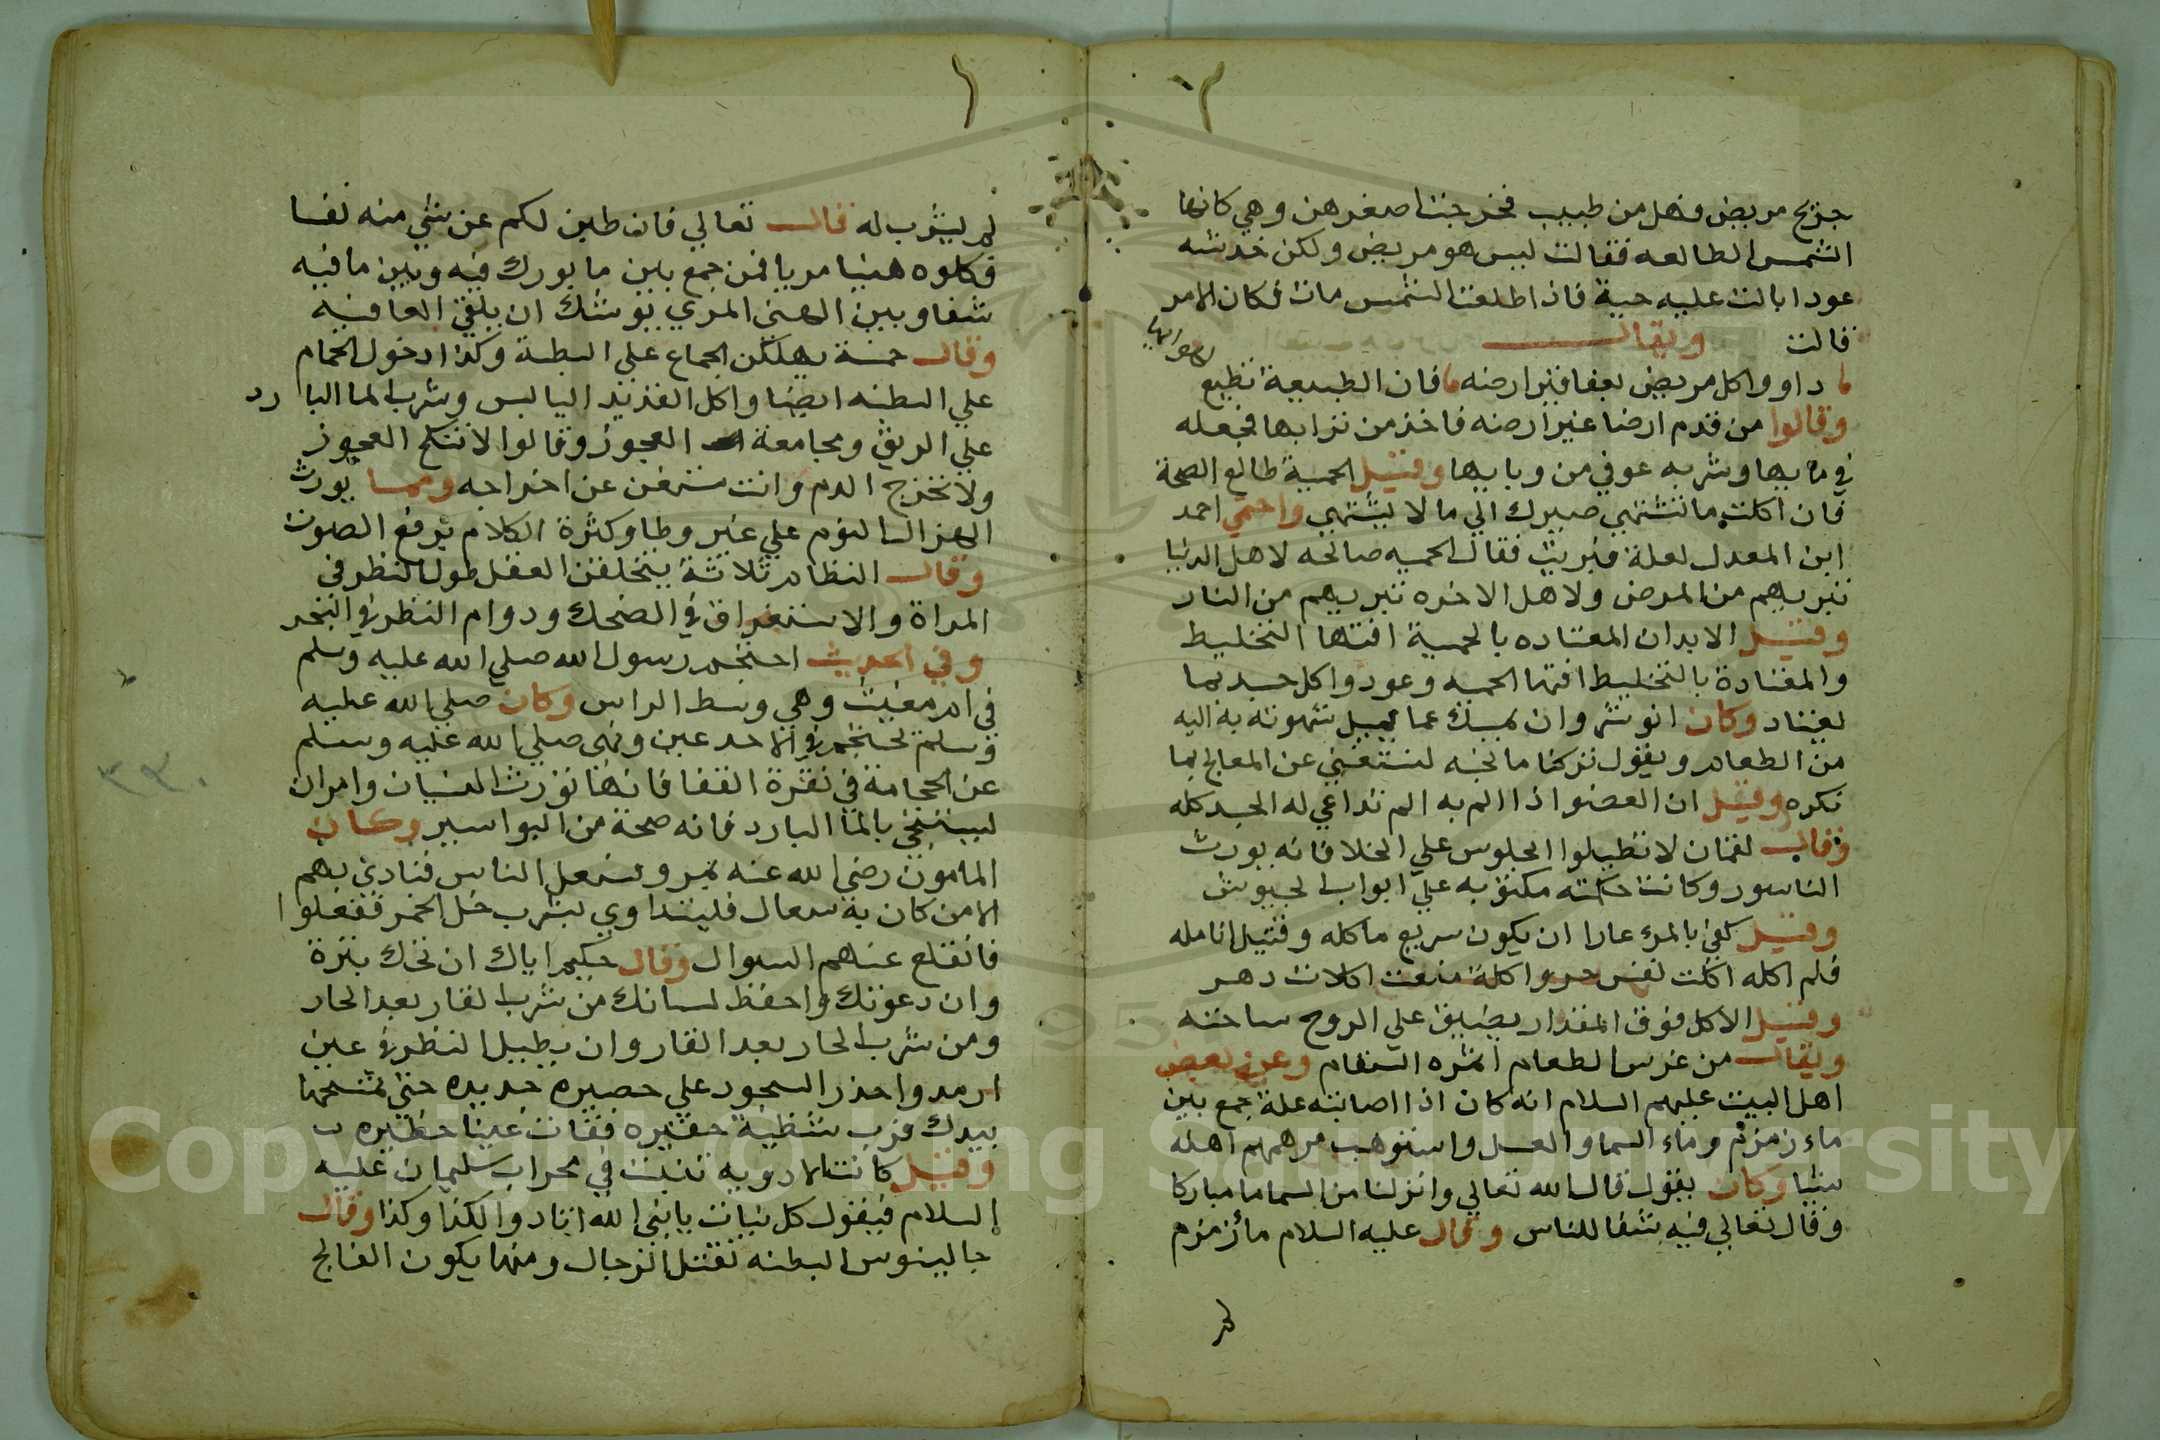 جزيح مريض وهل من طبيب فخرجت اصغرهن وهي كانها
الشمس الطالعه فقالت ليس هو مريض ولكن خدشته
عود ابالت عليه حية فاذا طلعت الشمس مات فكان الامر
قالت ويقال
داووا كل مريض بعقاقير ارضه فان الطبيعة تطيع
وقالوا من قدم ارضا غير ارضه فاخذ من ترابها فجعله
في مايها وشربه عوفي من وبايها وقيل الحمية طالع الصحة
فان اكلت ما تشتهي صيرك الي ما لا يشتهي واحتمي احمد
ابن المعدل لعلة فبريت فقال الحميه صالحه لاهل الدنيا
تبريهم من المرض ولاهل الاخره تبريهم من النار
وقيل الابدان المعتاده بالحمية افتها التخليط
والمعتادة بالتخليط افتها الحميه وعودوا كل جسد بما
يعتاد وكان انوشروان يمسك عما تميل شهوته به اليه
من الطعام ويقول تركنا ما نحبه لنستغني عن المعالج بما
نكره وقيل ان العضو اذا الم به الم تداعي له الجسد كله
وقال لقمان لا تطيلوا الجلوس علي الخلا فانه يورث
الناسور وكانت حكمته مكتوبه علي ابواب الحبوش
وقيل كفي بالمرء عارا ان يكون سريع ماكله وقتيل انامله
فلم اكله اكلت نفس حر واكلة منعت اكلات دهر
وقيل الاكل فوق المقدار يضيق علي الروح ساحته
ويقال من غرس الطعام اثمره السقام وعن بعض
اهل البيت عليهم السلام انه كان اذا اصابته علة جمع بين
ماء زمزم وماء السما والعسل واستوهب من مهر اهله
شيا وكان يقول قال الله تعالي وانزلنا من السما ما مباركا
وقال تعالي فيه شفا للناس وقال عليه السلام ماء زمزم
لم
لم يشرب له قال تعالي فان طبن لكم عن شي منه نفسا
فكلوه هنيا مريا فمن جمع بين ما بورك فيه وبين ما فيه
شفا وبين الهني المري يوشك ان يلقي العافيه
وقال خمسة يهلكن الجماع علي البطنة وكذا دخول الحمام
علي البطنه ايضا واكل القديد اليابس وشرب الما البارد
علي الريق ومجامعة العجوز وقالوا لا تنكح العجوز
ولا تخرج الدم وانت مستغن عن اخراجه ومما يورث
الهزال النوم علي غير وطا وكثرة الكلام برفع الصوت
وقال النظام ثلاثة يتخلفن العقل طول النظر في
المراة والاستغراق في الضحك ودوام النظر في البحر
وفي الحديث احتجم رسول الله صلي الله عليه وسلم
في ام مغيث وهي وسط الراس وكان صلي الله عليه
وسلم يحتجم في الاخدعين ونهي صلي الله عليه وسلم
عن الحجامة في نقرة القفا فانها تورث النسيان وامر ان
يستنجي بالما البارد فانه صحة من البواسير وكان
المامون رضي الله عنه بمرو وسعل الناس فنادي بهم
الا من كان به سعال فليتداوي بشرب خل الخمر ففعلوا
فانقلع عنهم السعال وقال حكيم اياك ان تحك بثرة
وان دعوتك واحفظ لسانك من شرب القار بعد الحار
ومن شرب الحار بعد القار وان يطيل النظر في عين
ارمد واحذر السجود علي حصيره جديده حتي تمسحها
بيدك فرب شظية حقيره فقات عينا خطيره
وقيل كانت الادويه تنبت في محراب سليمان عليه
السلام فيقول كل نبات يا نبي الله انا دوا لكذا وكذا وقال
جالينوس البطنه تقتل الرجال ومنها يكون الفالج
Copyright © King Saud University